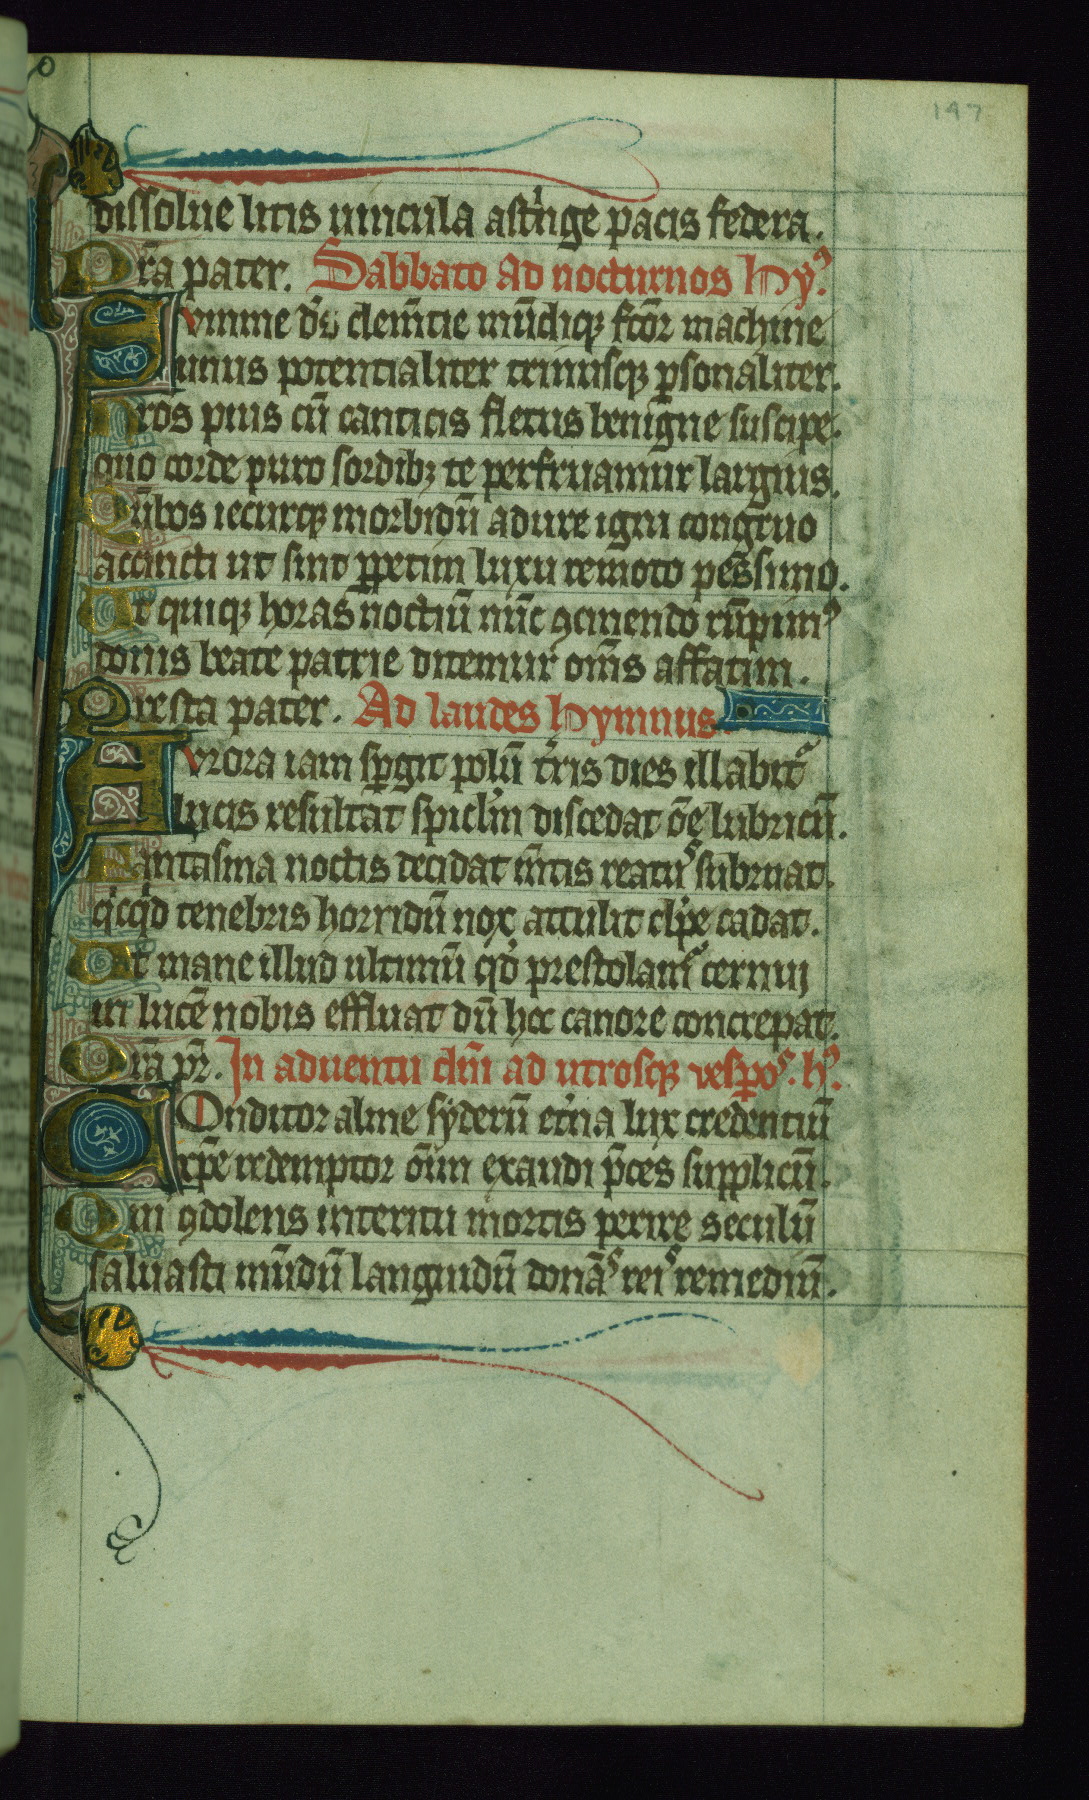 197
dissolue litis uincula astˈnge pacis federa.
Pˈra pater. Sabbato ad nocturnos hyꝰ.
Summe dˈs clemˈtie mūdiqꝫ fcˈor machine
unus potentialiter trinusqꝫ ꝑsonaliter.
Nˈros pius cū canticis fletus benigne suscipe.
quo corde puro sordibꝫ te perfruamur largius.
Lūbos iecurqꝫ morbidū adure igni congruo
accincti ut sint ꝑpetim luxu remoto pessimo.
Ut quiqꝫ horas noctiū nūc ꝯcinendo rūpimꝰ
donis beate patrie ditemur omˈs affatim.
Presta pater. Ad laudes hymnus.
Aurora iam spˈgit polū tˈris dies illabitˈ
lucis resultat spiclˈm discedat oē lubricū.
Fantasma noctis decidat mˈtis reatus subruat.
qˈcqˈd tenebris horridū nox attulit clˈpe cadat.
Ut mane illud ultimū qˈd prestolamˈ cernui
in lucē nobis effluat dū hec canore concrepat.
Pˈra pˈr. In aduentu dnˈi ad utrosqꝫ vesꝑos. hˈꝰ.
Conditor alme syderū etˈna lux credentiū
xpˈe redemptor oīm exaudi pˈces supplicū.
Qui ꝯdolens interitu mortis perire seculū
saluasti mūdū languidū donās reis remediū.